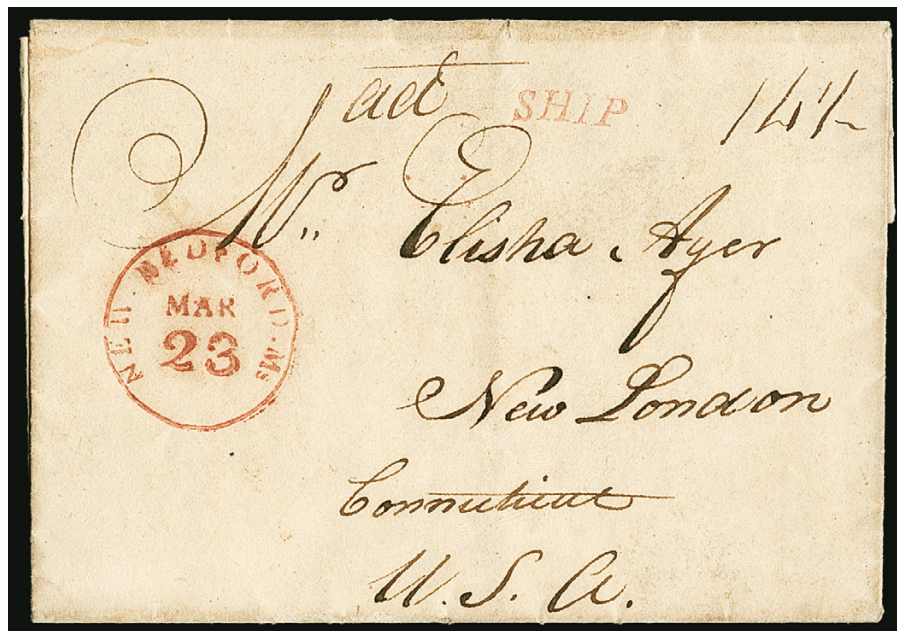 SHIP
Mr. Elisha Ayer
New London
Connecticut
U. S. A.
NEW·BEDFORD·Ms
MAR
23